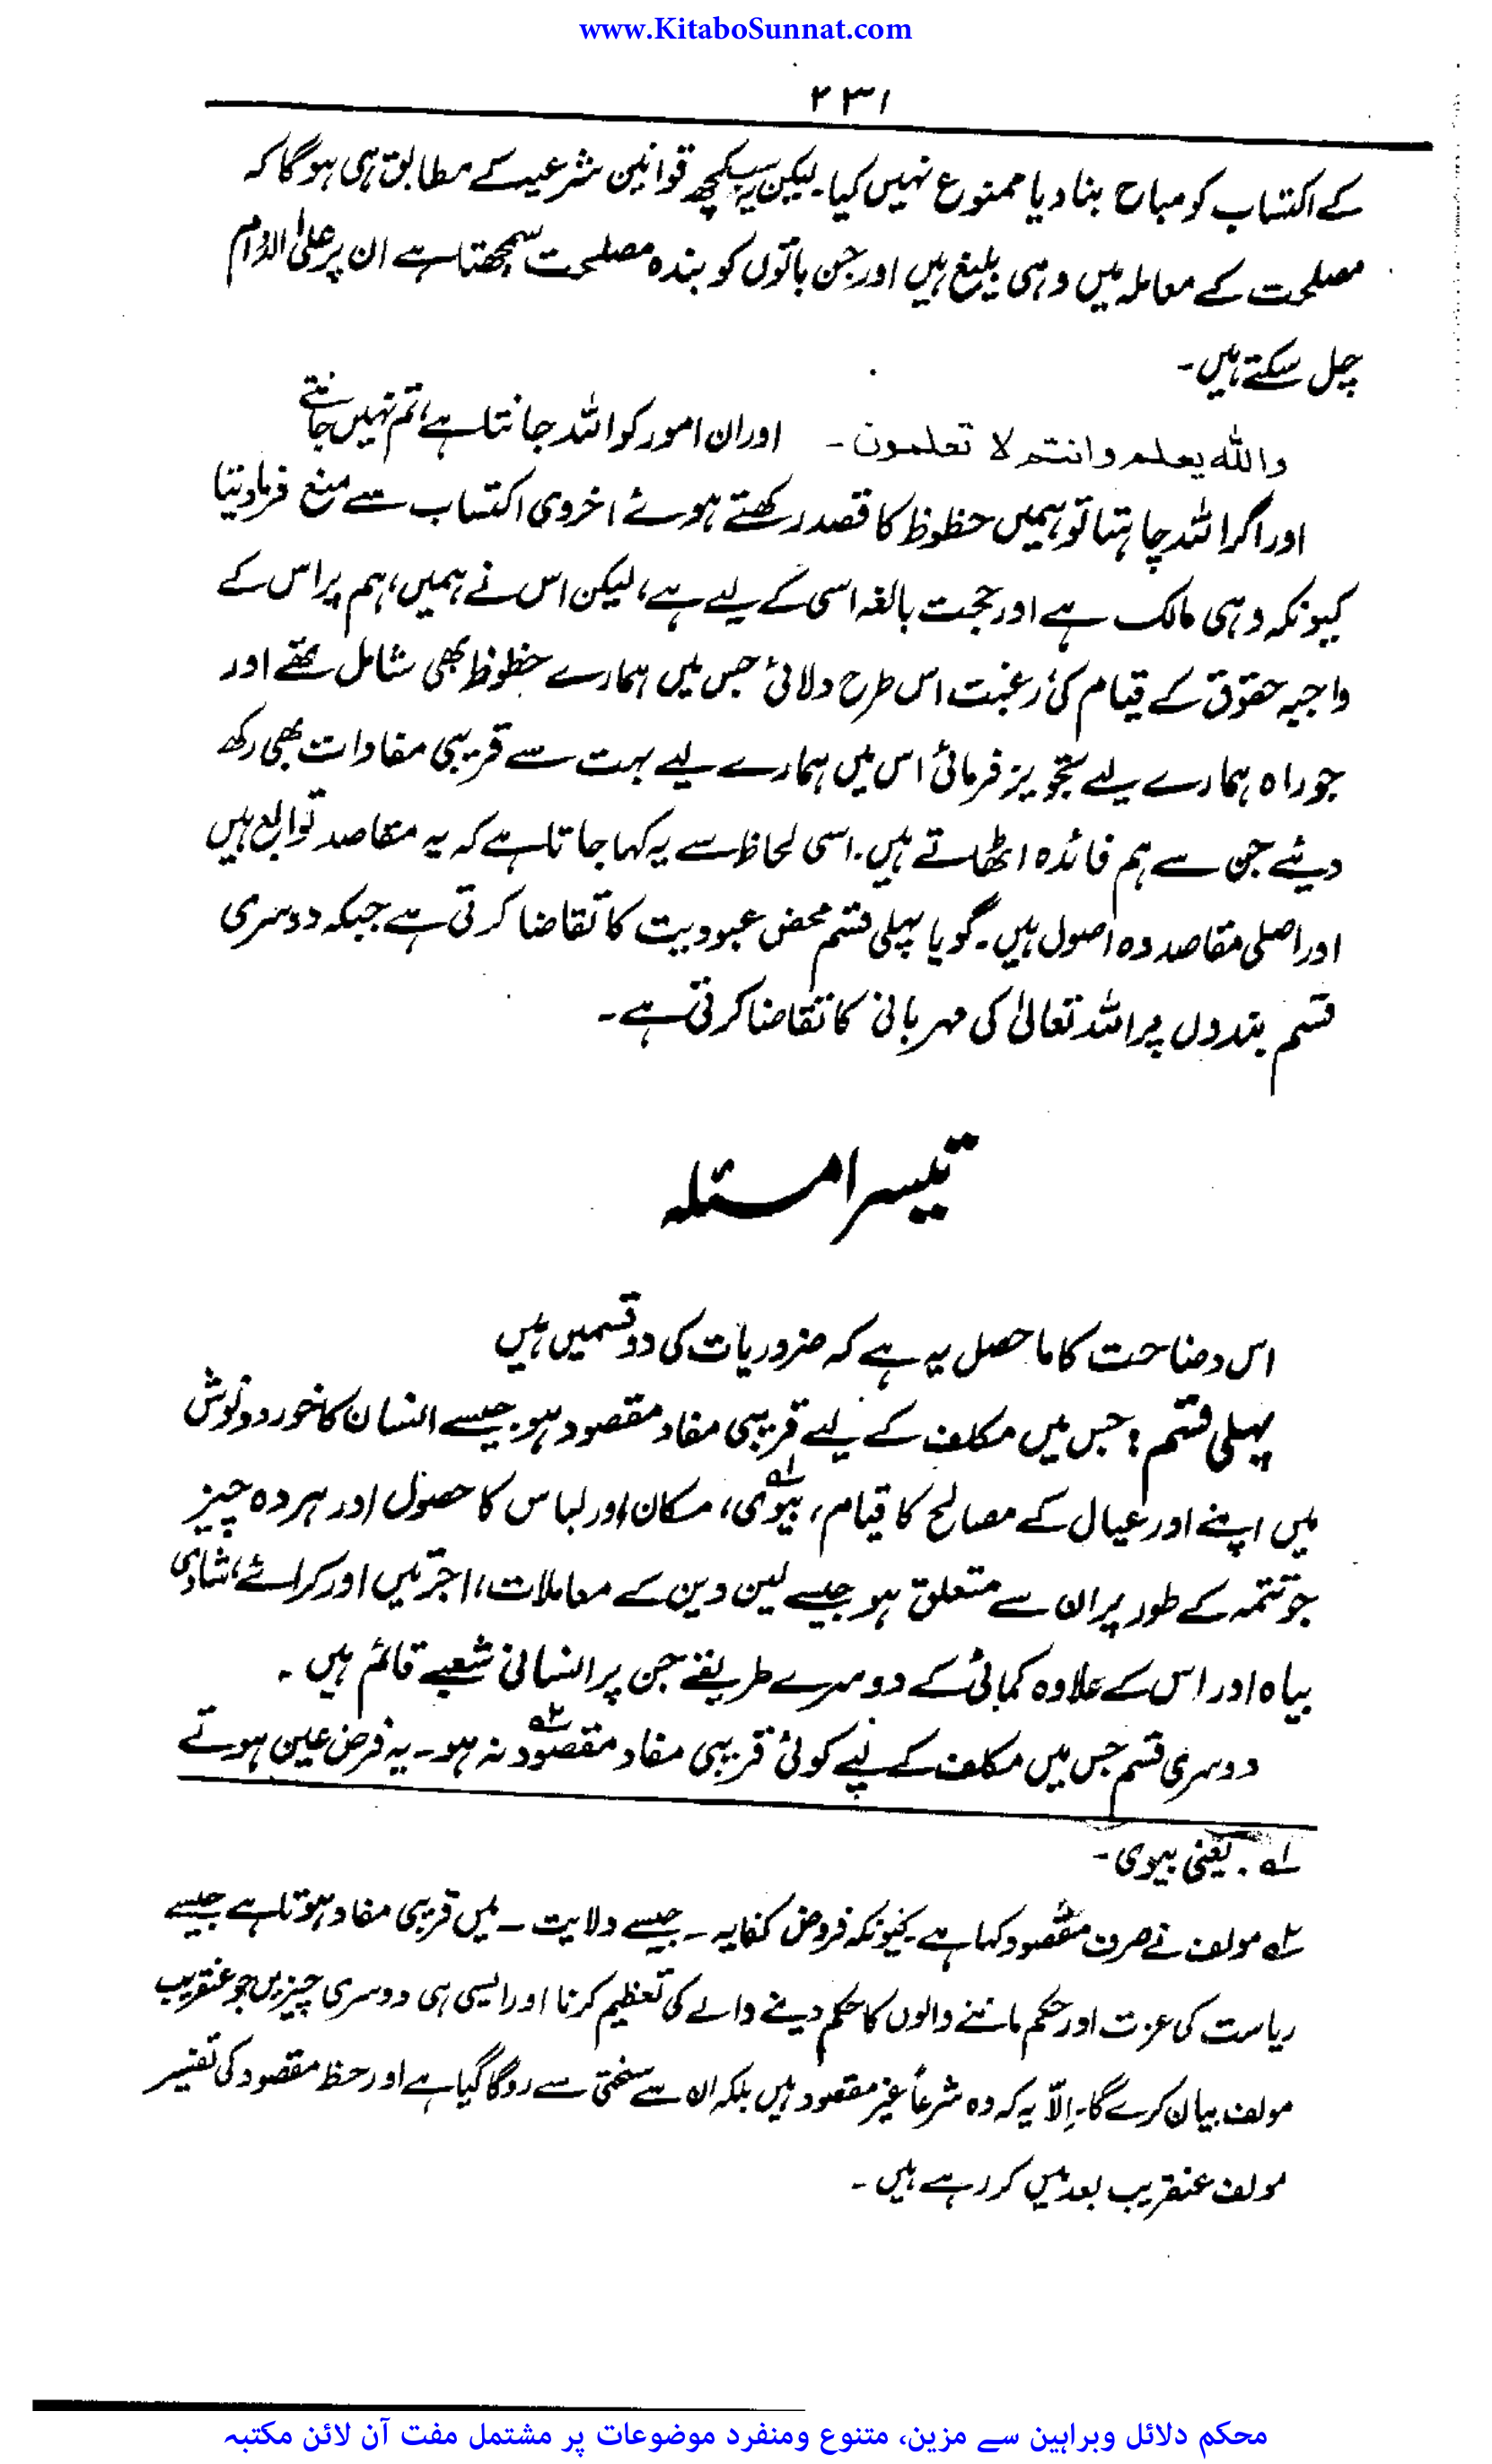 www.KitaboSunnat.com
۲۳۱
کے اکتساب کو مباح بنا دیا ممنوع نہیں کیا۔ لیکن یہ سب کچھ قوانین شرعیہ کے مطابق ہی ہوگا کہ
مصلحت کے معاملہ میں وہی بلیغ ہیں اور جن باتوں کو بندہ مصلحت سمجھتا ہے ان پر علی الدوام
چل سکتے ہیں۔
واللہ یعلم وانتم لا تعلمون۔ اور ان امور کو اللہ جانتا ہے، تم نہیں جانتے
اور اگر اللہ چاہتا تو ہمیں حظوظ کا قصد رکھتے ہوئے اخروی اکتساب سے منع فرما دیتا
کیونکہ وہی مالک ہے اور حجت بالغہ اسی کے لیے ہے، لیکن اس نے ہمیں، ہم پر اس کے
واجبہ حقوق کے قیام کی رغبت اس طرح دلائی جس میں ہمارے حظوظ بھی شامل تھے اور
جو راہ ہمارے لیے تجویز فرمائی اس میں ہمارے لیے بہت سے قریبی مفادات بھی رکھ
دیئے جن سے ہم فائدہ اٹھاتے ہیں۔ اسی لحاظ سے یہ کہا جاتا ہے کہ یہ مقاصد توابع ہیں
اور اصلی مقاصد وہ اصول ہیں۔ گویا پہلی قسم محض عبودیت کا تقاضا کرتی ہے جبکہ دوسری
قسم بندوں پر اللہ تعالیٰ کی مہربانی کا تقاضا کرتی ہے۔
تیسرا مسئلہ
اس وضاحت کا ماحصل یہ ہے کہ ضروریات کی دو قسمیں ہیں
پہلی قسم : جس میں مکلف کے لیے قریبی مفاد مقصود ہو جیسے انسان کا خورد و نوش
میں اپنے اور عیال کے مصالح کا قیام، بیوی۱؎، مکان اور لباس کا حصول اور ہر وہ چیز
جو تتمہ کے طور پر ان سے متعلق ہو جیسے لین دین کے معاملات، اجرتیں اور کرائے، شادی
بیاہ اور اس کے علاوہ کمائی کے دوسرے طریقے جن پر انسانی شعبے قائم ہیں۔
دوسری قسم جس میں مکلف کے لیے کوئی قریبی مفاد مقصود۲؎ نہ ہو۔ یہ فرض عین ہوتے
۱؎۔ یعنی بیوی۔
۲؎ مولف نے صرف مقصود کہا ہے کیونکہ فروض کفایہ ۔ جیسے ولایت ۔ میں قریبی مفاد ہوتا ہے جیسے
ریاست کی عزت اور حکم ماننے والوں کا حکم دینے والے کی تعظیم کرنا اور ایسی ہی دوسری چیزیں جو عنقریب
مولف بیان کرے گا۔ اِلّا یہ کہ وہ شرعاً غیر مقصود ہیں بلکہ ان سے سختی سے روکا گیا ہے اور حظ مقصود کی تفسیر
مولف عنقریب بعد میں کر رہے ہیں۔
محکم دلائل وبراہین سے مزین، متنوع ومنفرد موضوعات پر مشتمل مفت آن لائن مکتبہ